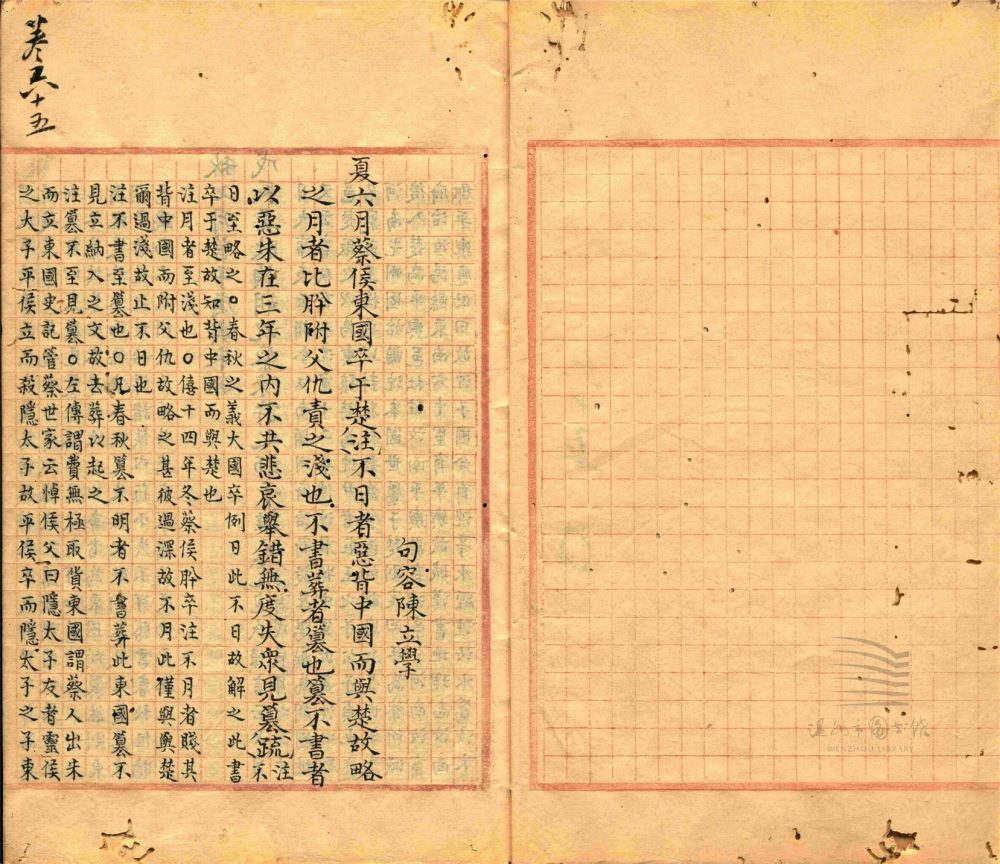 卷六十五
句容陳立學
夏六月蔡侯東國卒于楚注不日者惡背中國而與楚故略
之月者比肸附父仇責之淺也不書葬者篡也篡不書者
以惡朱在三年之內不共悲哀舉錯無度失眾見篡疏注不
日至略之○春秋之義大國卒例日此不日故解之此書
卒于楚故知背中國而與楚也
注月者至淺也○僖十四年冬蔡侯肸卒注不月者賤其
背中國而附父仇故略之甚彼過深故不月此僅與楚
爾過淺故止不日也
注不書至篡也○凡春秋篡不明者不書葬此東國篡不
見立納入之文故去葬以起之
注篡不至見篡○左傳謂費無極取貨東國謂蔡人出朱
而立東國史記管蔡世家云悼侯父曰隱太子友者靈侯
之大子平侯立而殺隱太子故平侯卒而隱太子之子東
溫州市圖書館
WENZHOU LIBRARY